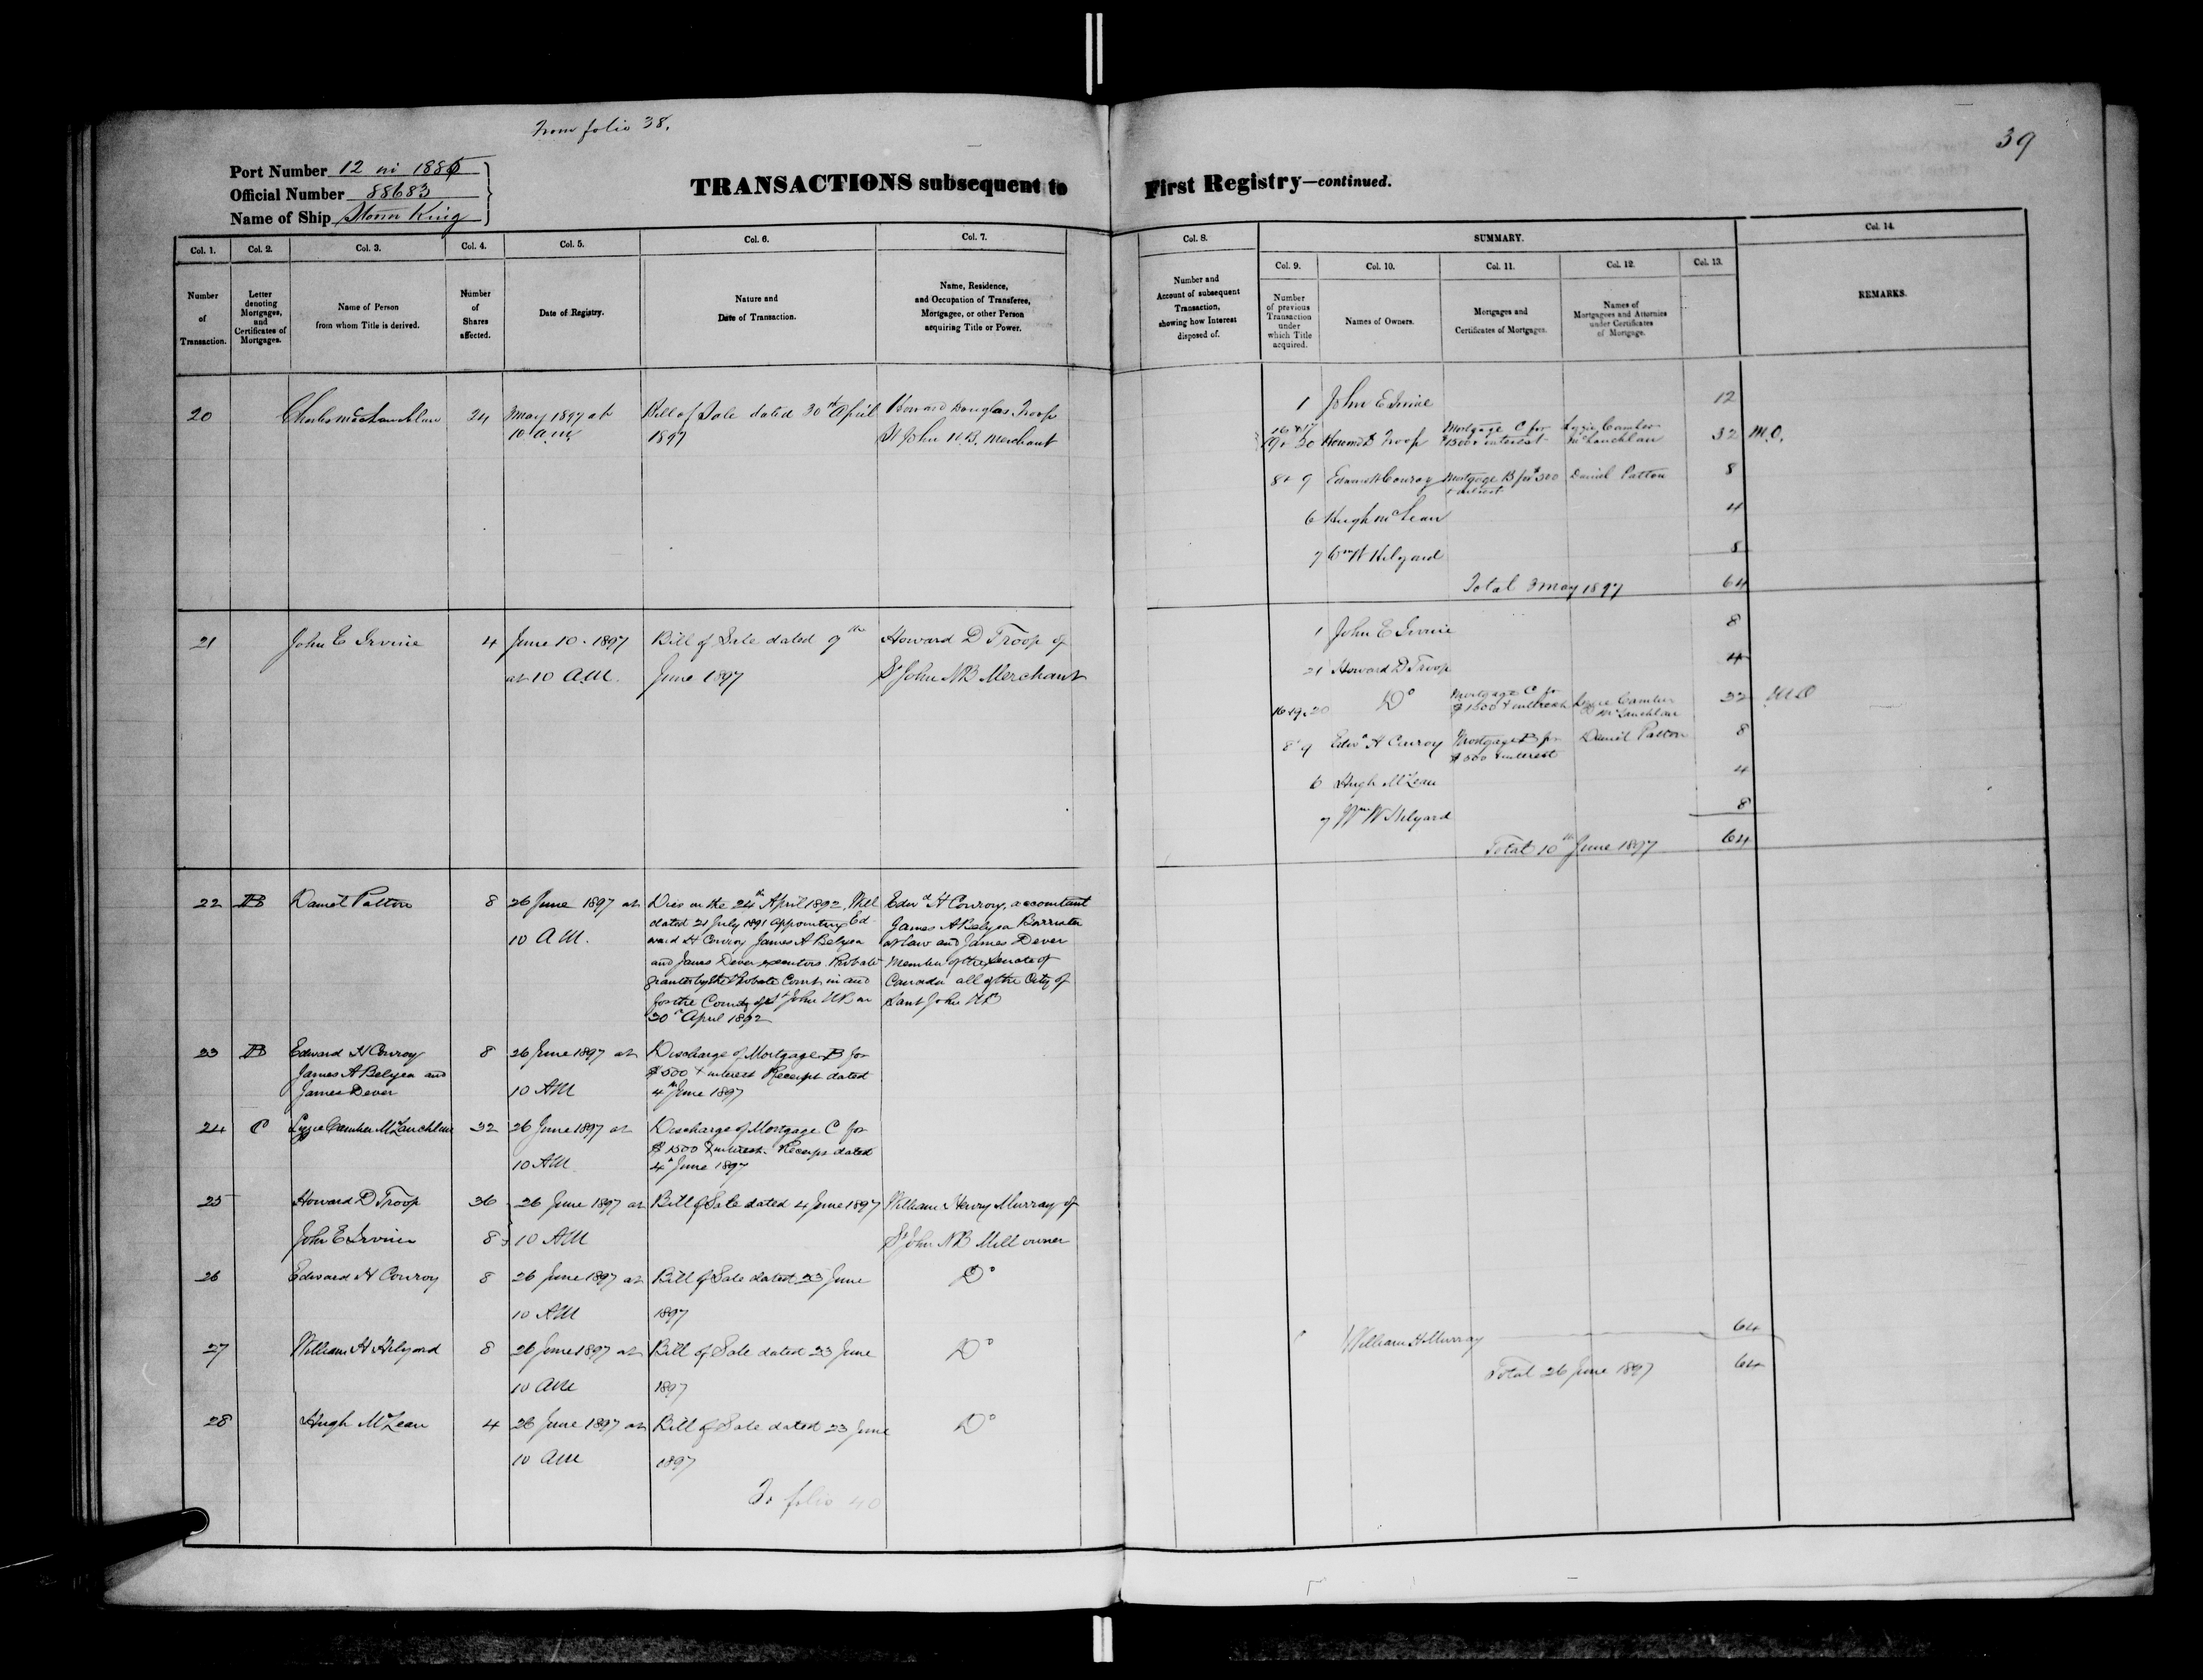 From folio 38.
39
Port Number 12 in 1886
Official Number 88683
Name of Ship Storm King
TRANSACTIONS subsequent to First Registry—continued.
Col. 1. Col. 2. Col. 3. Col. 4. Col. 5. Col. 6. Col. 7.
Number of Transaction.
Letter denoting Mortgages, and Certificates of Mortgages.
Name of Person from whom Title is derived.
Number of Shares affected.
Date of Registry.
Nature and Date of Transaction.
Name, Residence, and Occupation of Transferee, Mortgagee, or other Person acquiring Title or Power.
20 Charles McLauchlan 24 3 May 1897 at Bill of Sale dated 30th April Howard Douglas Troop
10 a.m. 1897 St John N.B. Merchant
21 John E Irvine 4 June 10. 1897 Bill of Sale dated 9th Howard D Troop of
at 10 A.M. June 1897 St John NB Merchant
22 B Daniel Patton 8 26 June 1897 at Dies on the 24th April 1892. Will Edwd H Conroy, accountant
dated 21 July 1891 appointing Ed- James A Belyea Barrister
10 AM. ward H Conroy James A Belyea at law and James Dever
and James Dever executors. Probate Member of the Senate of
granted by the Probate Court in and Canada all of the City of
for the County of St John NB on Saint John NB
30th April 1892
23 B Edward H Conroy 8 26 June 1897 at Discharge of Mortgage B for
James A Belyea and $500 & interest Receipt dated
James Dever 10 AM 4th June 1897
24 C Lizzie Camber McLauchlan 32 26 June 1897 at Discharge of Mortgage C for
$1500 & interest. Receipt dated
10 AM 4th June 1897
25 Howard D Troop 36 26 June 1897 at Bill of Sale dated 4 June 1897 William Henry Murray of
John E Irvine 8 10 AM St John NB Mill owner
26 Edward H Conroy 8 26 June 1897 at Bill of Sale dated 23 June Do
10 AM 1897
27 William H Hilyard 8 26 June 1897 at Bill of Sale dated 23 June Do
10 AM 1897
28 Hugh McLean 4 26 June 1897 at Bill of Sale dated 23 June Do
10 AM 1897
To folio 40
Col. 8. SUMMARY. Col. 14.
Col. 9. Col. 10. Col. 11. Col. 12. Col. 13.
Number and Account of subsequent Transaction, showing how Interest disposed of.
Number of previous Transaction under which Title acquired.
Names of Owners.
Mortgages and Certificates of Mortgages.
Names of Mortgagees and Attornies under Certificates of Mortgage.
REMARKS.
1 John E Irvine 12
16 + 17
19 + 20 Howard D Troop Mortgage C for $1500 + interest Lizzie Camber McLauchlan 32 M.O.
8 + 9 Edward H Conroy Mortgage B for $500 + interest Daniel Patton 8
6 Hugh McLean 4
7 Wm H Hilyard 8
Total 3 May 1897 64
1 John E Irvine 8
21 Howard D Troop 4
16 19 20 Do Mortgage C for $1500 & interest Lizzie Camber McLauchlan 32 M.O
8 9 Edwd H Conroy Mortgage B for $500 & interest Daniel Patton 8
6 Hugh McLean 4
7 Wm H Hilyard 8
Total 10th June 1897 64
William H Murray 64
Total 26 June 1897 64